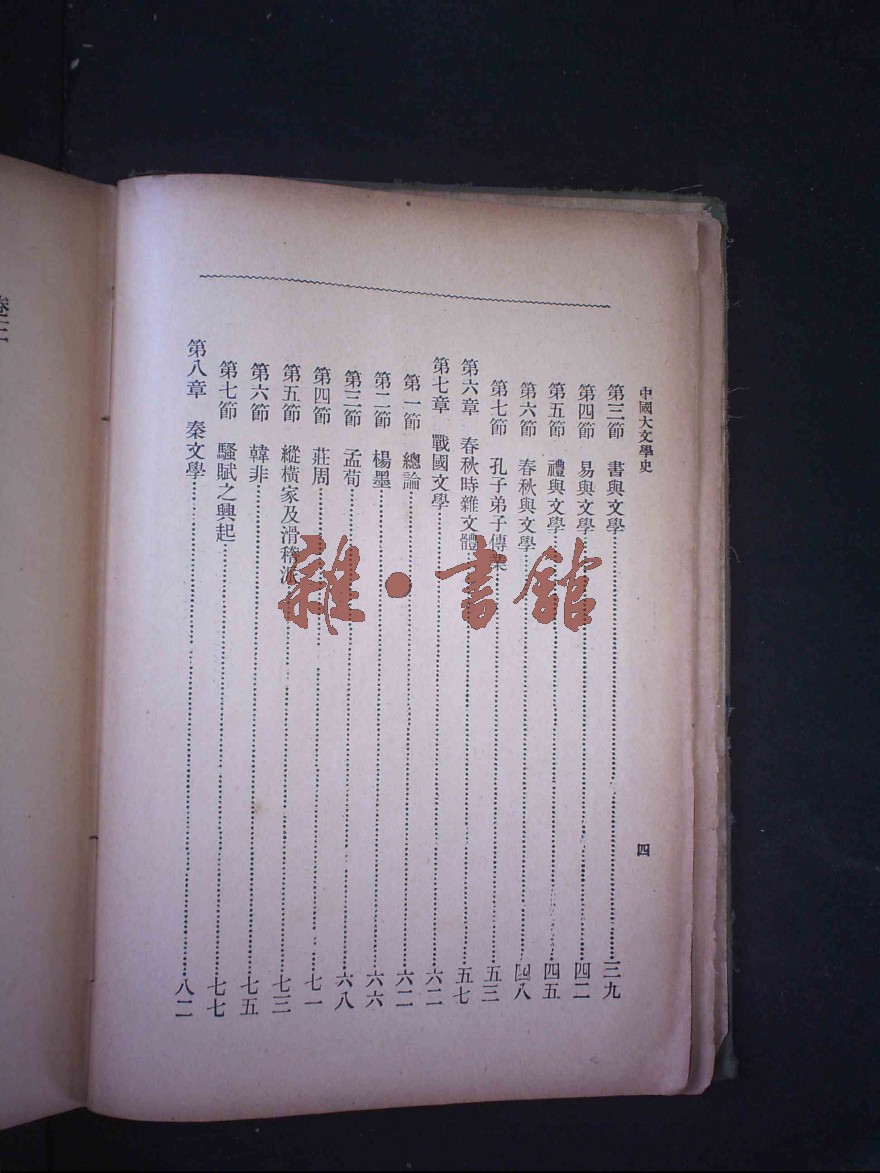 中國大文學史
四
第三節 書與文學 三九
第四節 易與文學 四二
第五節 禮與文學 四五
第六節 春秋與文學 四八
第七節 孔子弟子傳業 五三
第六章 春秋時雜文體 五七
第七章 戰國文學 六二
第一節 總論 六二
第二節 楊墨 六六
第三節 孟荀 六八
第四節 莊周 七一
第五節 縱橫家及滑稽派 七三
第六節 韓非 七五
第七節 騷賦之興起 七七
第八章 秦文學 八二
雜·書館